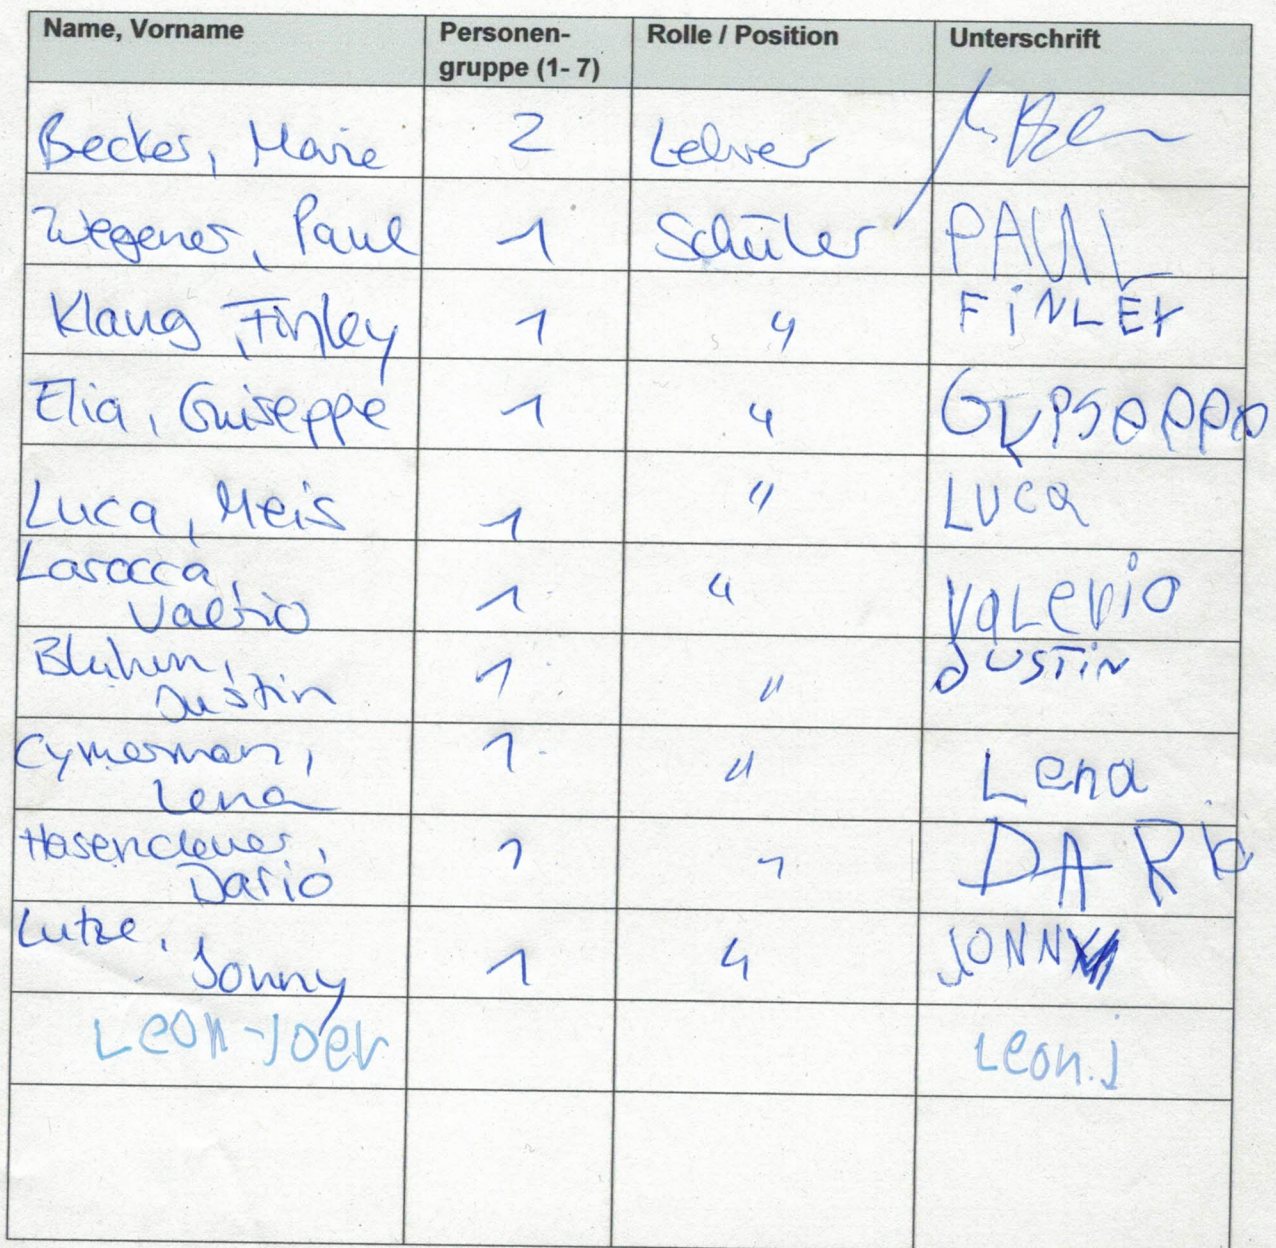 Name, Vorname Personen- Rolle / Position Unterschrift
gruppe (1- 7)
Becker, Marie 2 Lehrer
Wegener, Paul 1 Schüler PAUL
Klaug, Finley 1 " FiNLEY
Elia, Guiseppe 1 "
Luca, Meis 1 " LUCa
Larocca, 1 " VaLeriO
Valerio
Bluhm, 1 " JUSTiN
Dustin
Cymerman, 1 " Lena
Lena
Hasenclever, 1 " DARio
Dario
Lutze, 1 " JONNY
Jonny
Leon-Joel Leon.j